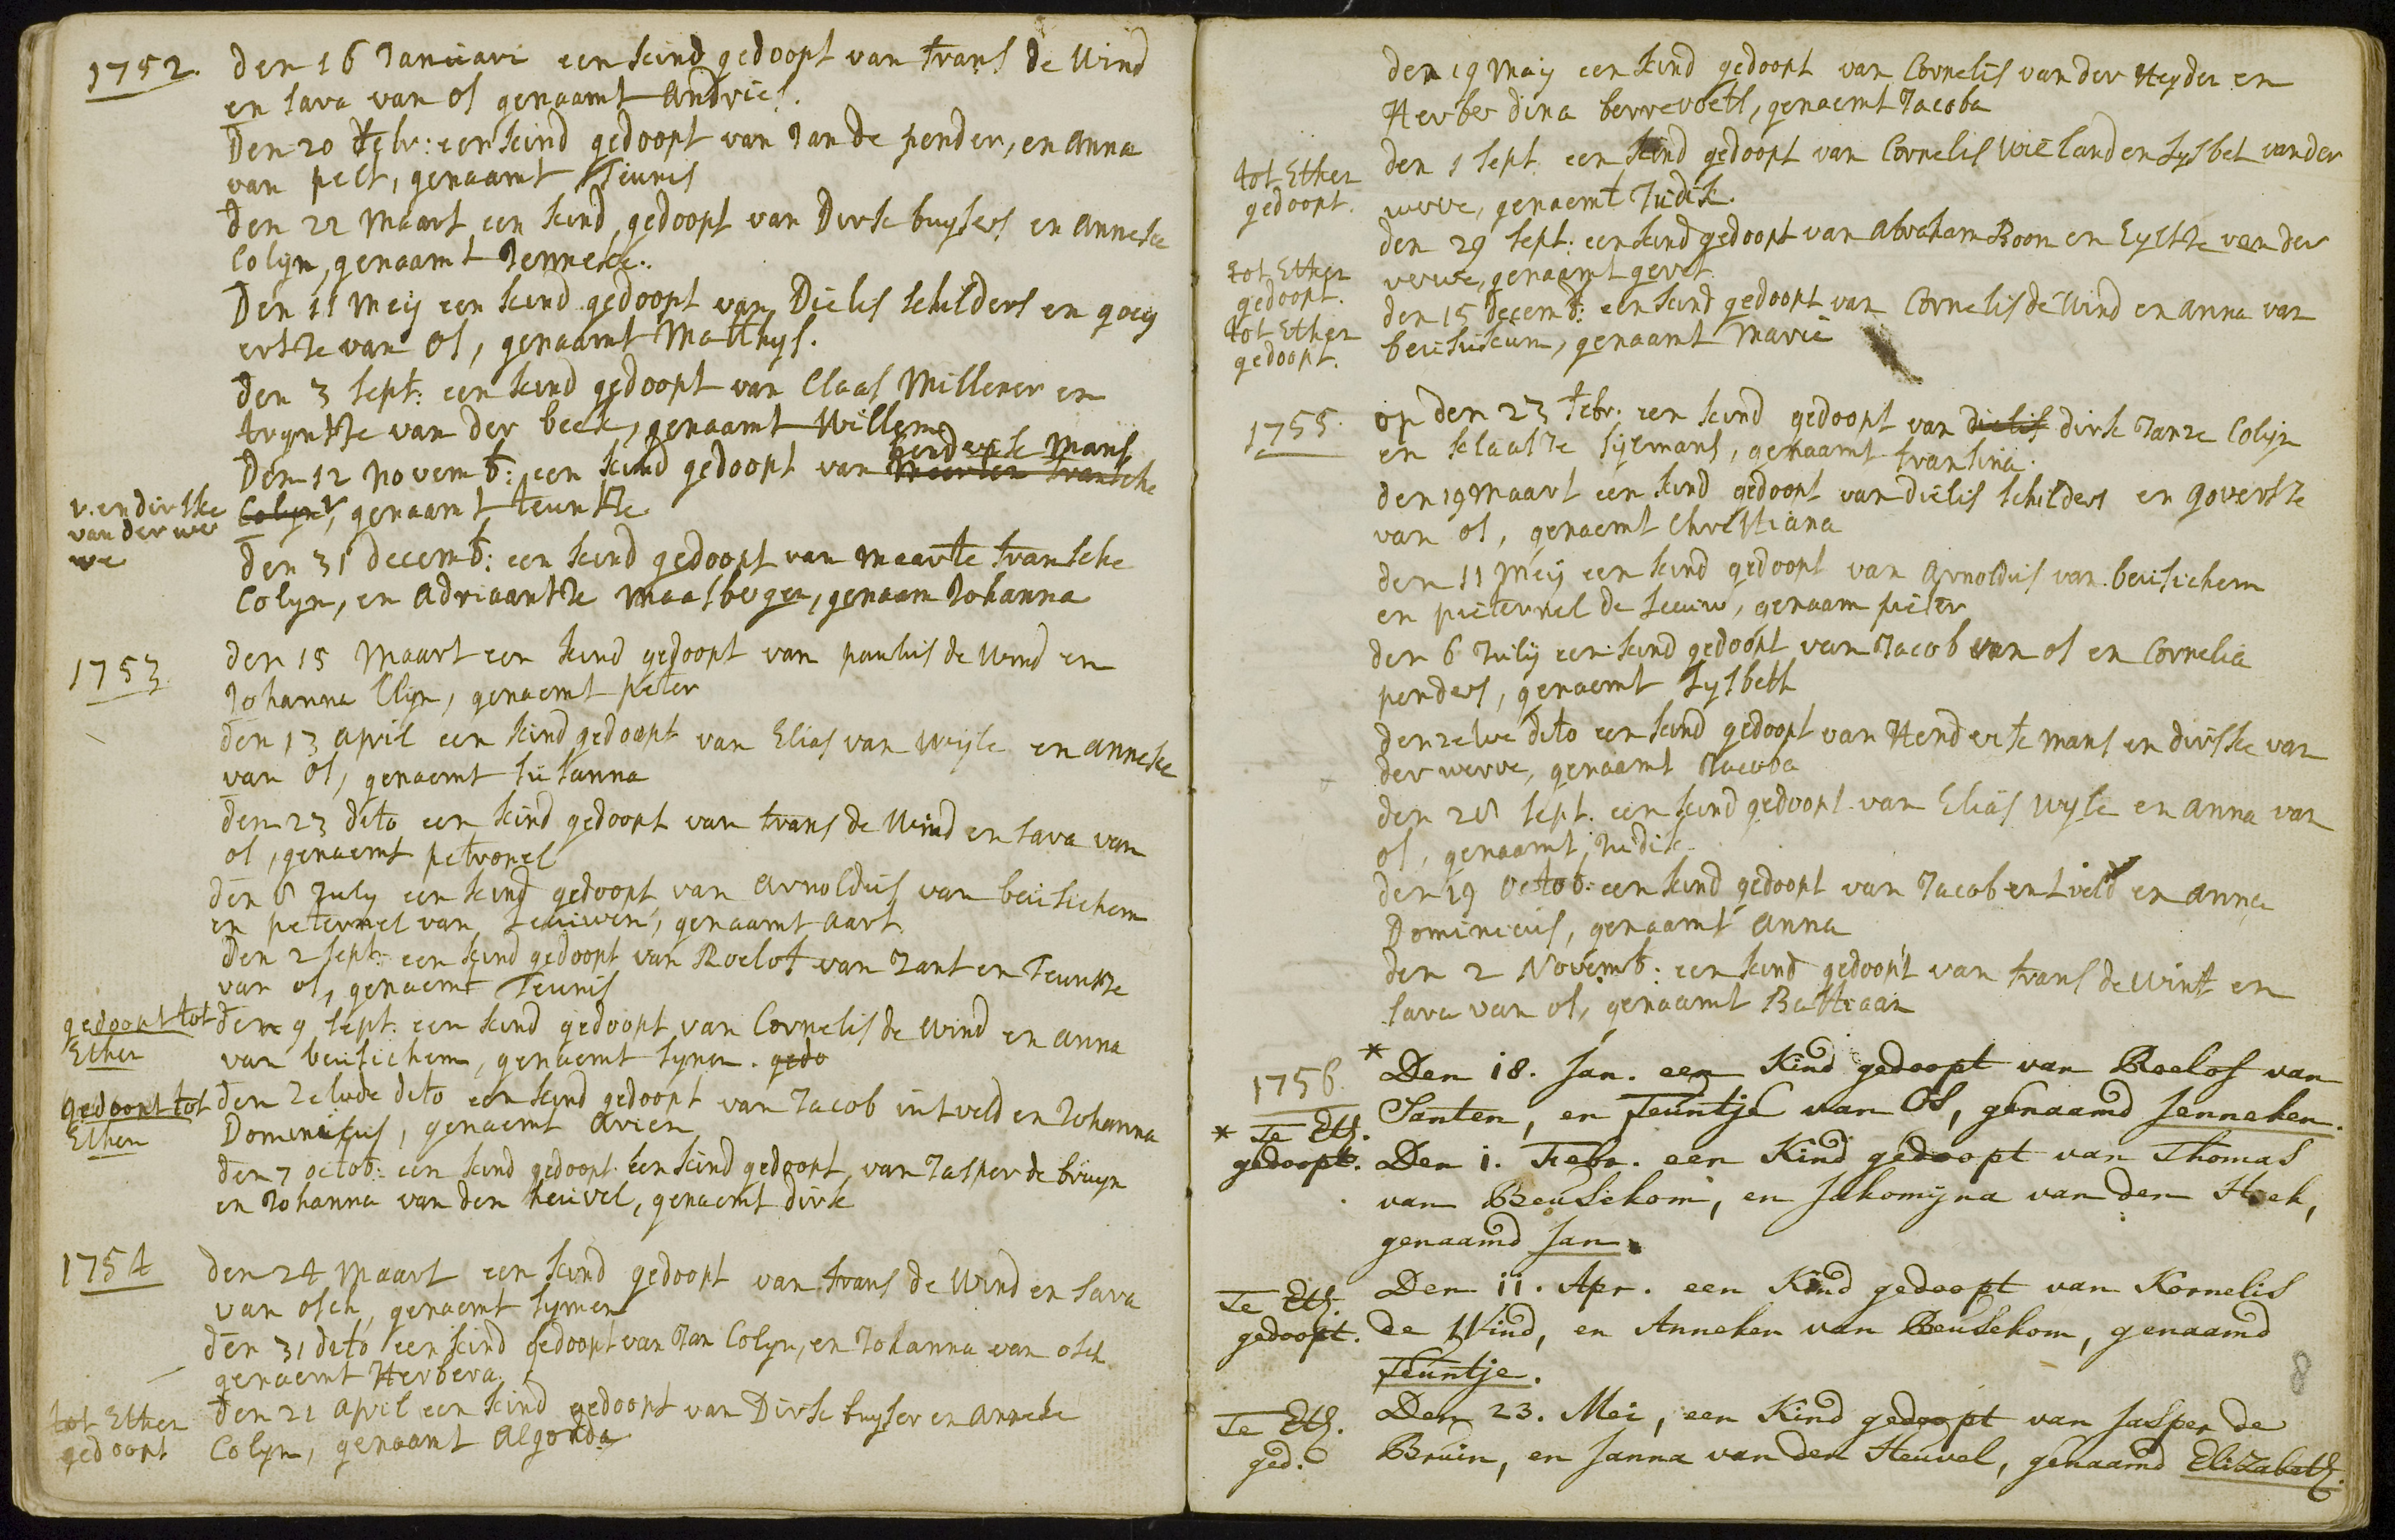 1752. den 16 Januari een kind gedoopt van frans de Wind
en sara van os genaamt Andries.
Den 20 febr: een kind gedoopt van Jan de pender, en anna
van pelt, genaamt Teunis
den 22 Maart een kind gedoopt van Dirk buysers en anneke
Colyn, genaamt Jenneke.
Den 11 Meij een kind gedoopt van Dielis schilders en goey
ertze van Os, genaamt Matthys.
den 3 sept: een kind gedoopt van Claas Millener en
tryntze van der beek, genaamt Willem
henderik Mans
Den 12 novemb: een kind gedoopt van Maerten fransche
v. en dirske
van der wer
we
Colyn, genaamt teuntze
den 31 decemb: een kind gedoopt van maarte fransche
Colyn, en Adriaantze maasbergen, genaam Johanna
1753
den 15 Maart een kind gedoopt van paulus de Wind en
Johanna Clyn, genaemt peter
den 13 april een kind gedoopt van Elias van wyle en anneke
van Os, genaemt susanna
den 23 dito een kind gedoopt van frans de Wind en sara van
os, genaemt petronel
den 8 July een kind gedoopt van arnoldus van beusichem
en peternel van Leeuwen, genaamt aart
Den 2 sept: een kind gedoopt van Roelof van zant en Teuntze
van os, genaemt Teunis
gedoopt tot
Ethen
den 9 sept: een kind gedoopt van Cornelis de Wind en anna
van beusichem, genaemt symen. gedo
gedoopt tot
Ethen
den zelvde dito een kind gedoopt van Jacob intveld en Johanna
Dominicus, genaemt Arien
den 7 octob: een kind gedoopt een kind gedoopt van Jasper de bruyn
en Johanna van den heuvel, genaemt dirk
1754
den 24 Maart een kind gedoopt van frans de Wind en sara
van osch, genaemt symen
den 31 dito een kind gedoopt van Jan Colyn, en Johanna van osch
genaemt Herbera
tot Ethen
gedoopt
den 21 april een kind gedoopt van Dirk buyser en anneke
Colyn, genaamt Algonda
den 19 may een kind gedoopt van Cornelis van der Heyden en
Herberdina berrevoets, genaemt Jacoba
tot Ethen
gedoopt.
den 1 sept een kind gedoopt van Cornelis wieland en Lysbet van der
werve, genaemt Judik.
tot Ethen
gedoopt.
den 29 sept: een kind gedoopt van Abraham Roon en Eyktze van der
werve, genaamt geret
tot Ethen
gedoopt.
den 15 decemb: een kind gedoopt van Cornelis de Wind en anna van
beusukum, genaamt Marie
1755.
op den 23 febr. een kind gedoopt van dielis dirk Janze Colijn
en klaasze sijemans, genaamt fransina.
den 19 maart een kind gedoopt van dielis schilders en govertze
van os, genaemt Christiana
den 11 meij een kind gedoopt van Arnoldus van beusichem
en pieternel de Leeuw, genaam pieter
den 6 July een kind gedoopt van Jacob van os en Cornelia
penders, genaemt Lysbeth
denzelve dito een kind gedoopt van Henderik mans en dirske van
der werve, genaamt Jacoba
den 28 sept. een kind gedoopt van Elias wyle en anna van
os, genaamt, Judik.
den 19 octob: een kind gedoopt van Jacob intveld en anna
Dominicus, genaamt Anna
den 2 Novemb: een kind gedoopt van frans de Wint en
sara van os, genaamt Bastiaan
1756.
* Te Eth.
gedoopt.
* Den 18. Jan. een Kind gedoopt van Roelof van
Santen, en Teuntje van Os, genaamd Jenneken.
Den 1. Febr. een Kind gedoopt van Thomas
van Beusekom, en Jakomijna van den Hoek,
genaamd Jan.
Te Eth.
gedoopt.
Den 11. Apr. een Kind gedoopt van Kornelis
de Wind, en Anneken van Beusekom, genaamd
Teuntje.
8
Te Eth.
ged.
Den 23. Mei, een Kind gedoopt van Jasper de
Bruin, en Janna van den Heuvel, genaamd Elizabeth.